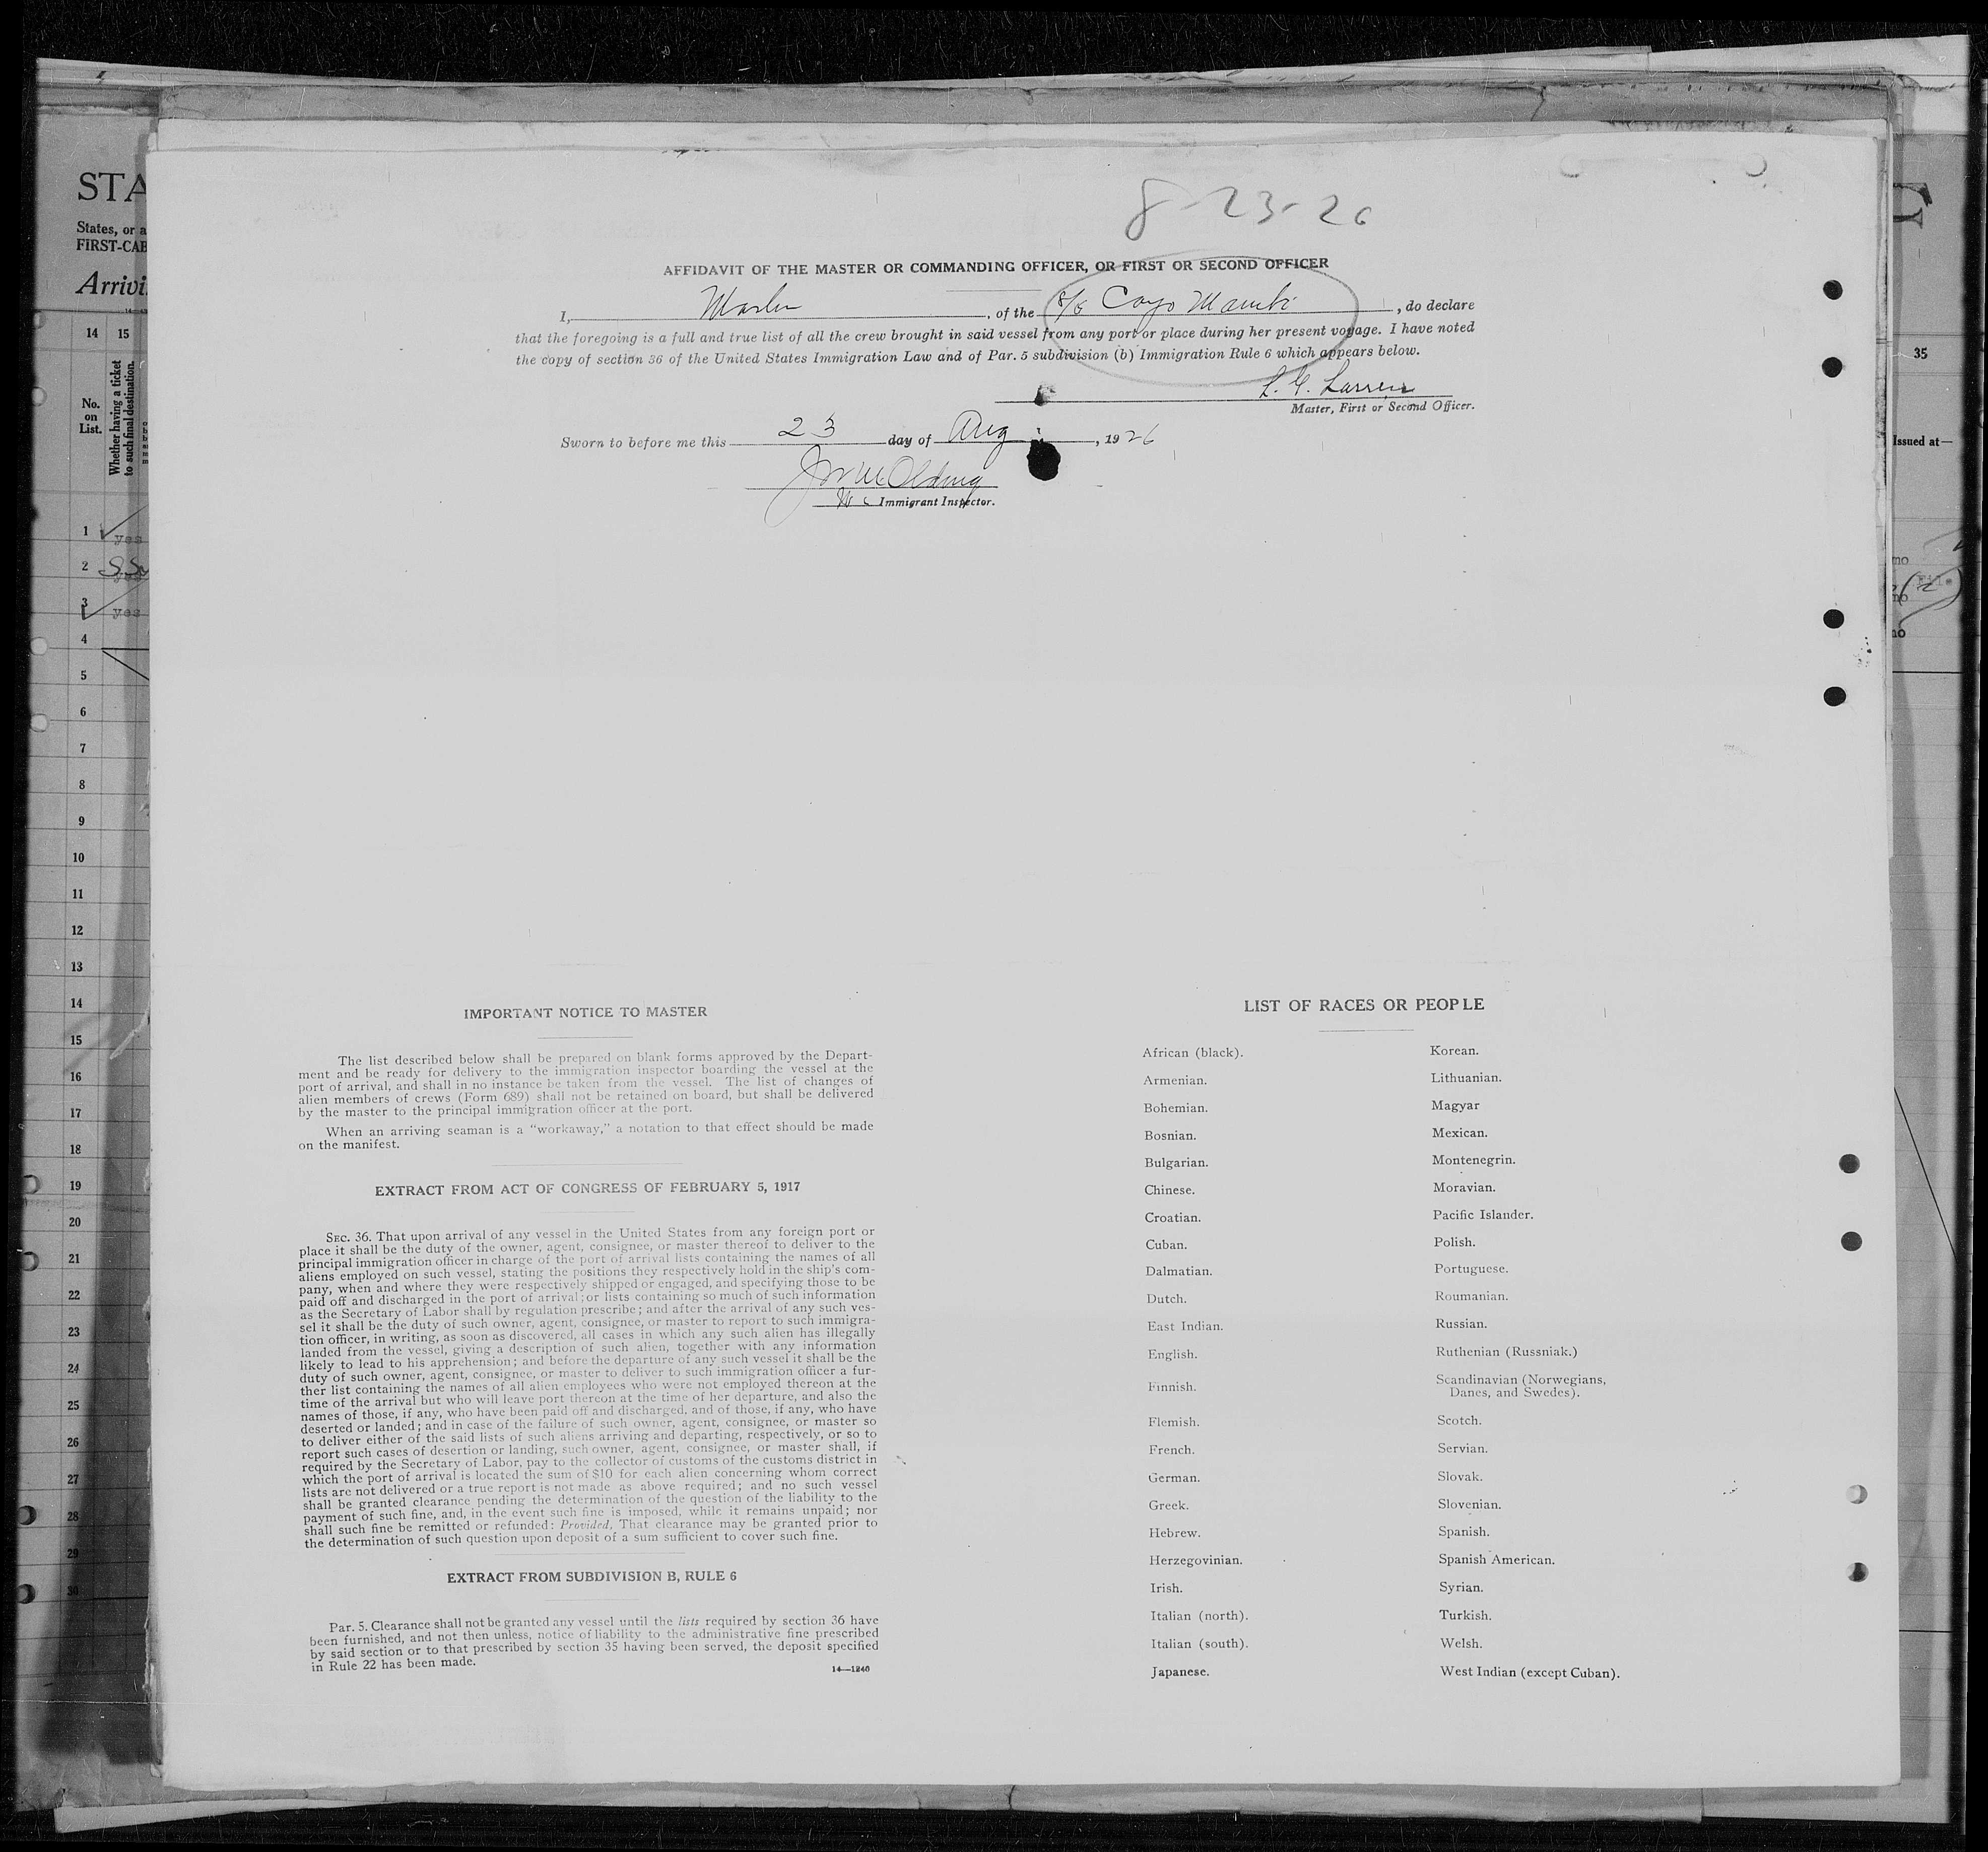 8-23-26
AFFIDAVIT OF THE MASTER OR COMMANDING OFFICER, OR FIRST OR SECOND OFFICER
I, Master, of the S/S Cayo Mambi, do declare
that the foregoing is a full and true list of all the crew brought in said vessel from any port or place during her present voyage. I have noted
the copy of section 36 of the United States Immigration Law and of Par. 5 subdivision (b) Immigration Rule 6 which appears below.
L. G. Larsen
Master, First or Second Officer.
Sworn to before me this 23 day of Aug, 1926
Immigrant Inspector.
IMPORTANT NOTICE TO MASTER
The list described below shall be prepared on blank forms approved by the Depart-
ment and be ready for delivery to the immigration inspector boarding the vessel at the
port of arrival, and shall in no instance be taken from the vessel. The list of changes of
alien members of crews (Form 689) shall not be retained on board, but shall be delivered
by the master to the principal immigration officer at the port.
When an arriving seaman is a "workaway," a notation to that effect should be made
on the manifest.
EXTRACT FROM ACT OF CONGRESS OF FEBRUARY 5, 1917
SEC. 36. That upon arrival of any vessel in the United States from any foreign port or
place it shall be the duty of the owner, agent, consignee, or master thereof to deliver to the
principal immigration officer in charge of the port of arrival lists containing the names of all
aliens employed on such vessel, stating the positions they respectively hold in the ship's com-
pany, when and where they were respectively shipped or engaged, and specifying those to be
paid off and discharged in the port of arrival; or lists containing so much of such information
as the Secretary of Labor shall by regulation prescribe; and after the arrival of any such ves-
sel it shall be the duty of such owner, agent, consignee, or master to report to such immigra-
tion officer, in writing, as soon as discovered, all cases in which any such alien has illegally
landed from the vessel, giving a description of such alien, together with any information
likely to lead to his apprehension; and before the departure of any such vessel it shall be the
duty of such owner, agent, consignee, or master to deliver to such immigration officer a fur-
ther list containing the names of all alien employees who were not employed thereon at the
time of the arrival but who will leave port thereon at the time of her departure, and also the
names of those, if any, who have been paid off and discharged, and of those, if any, who have
deserted or landed; and in case of the failure of such owner, agent, consignee, or master so
to deliver either of the said lists of such aliens arriving and departing, respectively, or so to
report such cases of desertion or landing, such owner, agent, consignee, or master shall, if
required by the Secretary of Labor, pay to the collector of customs of the customs district in
which the port of arrival is located the sum of $10 for each alien concerning whom correct
lists are not delivered or a true report is not made as above required; and no such vessel
shall be granted clearance pending the determination of the question of the liability to the
payment of such fine, and, in the event such fine is imposed, while it remains unpaid; nor
shall such fine be remitted or refunded: Provided, That clearance may be granted prior to
the determination of such question upon deposit of a sum sufficient to cover such fine.
EXTRACT FROM SUBDIVISION B, RULE 6
Par. 5. Clearance shall not be granted any vessel until the lists required by section 36 have
been furnished, and not then unless, notice of liability to the administrative fine prescribed
by said section or to that prescribed by section 35 having been served, the deposit specified
in Rule 22 has been made.
14—1240
LIST OF RACES OR PEOPLE
African (black).
Armenian.
Bohemian.
Bosnian.
Bulgarian.
Chinese.
Croatian.
Cuban.
Dalmatian.
Dutch.
East Indian.
English.
Finnish.
Flemish.
French.
German.
Greek.
Hebrew.
Herzegovinian.
Irish.
Italian (north).
Italian (south).
Japanese.
Korean.
Lithuanian.
Magyar
Mexican.
Montenegrin.
Moravian.
Pacific Islander.
Polish.
Portuguese.
Roumanian.
Russian.
Ruthenian (Russniak.)
Scandinavian (Norwegians,
Danes, and Swedes).
Scotch.
Servian.
Slovak.
Slovenian.
Spanish.
Spanish American.
Syrian.
Turkish.
Welsh.
West Indian (except Cuban).
STA
States, or a
FIRST-CAB
Arrivi
14 15
No.
on
List.
Whether having a ticket
to such final destination.
1 yes
2 yes
3 yes
4
5
6
7
8
9
10
11
12
13
14
15
16
17
18
19
20
21
22
23
24
25
26
27
28
29
30
35
Issued at—